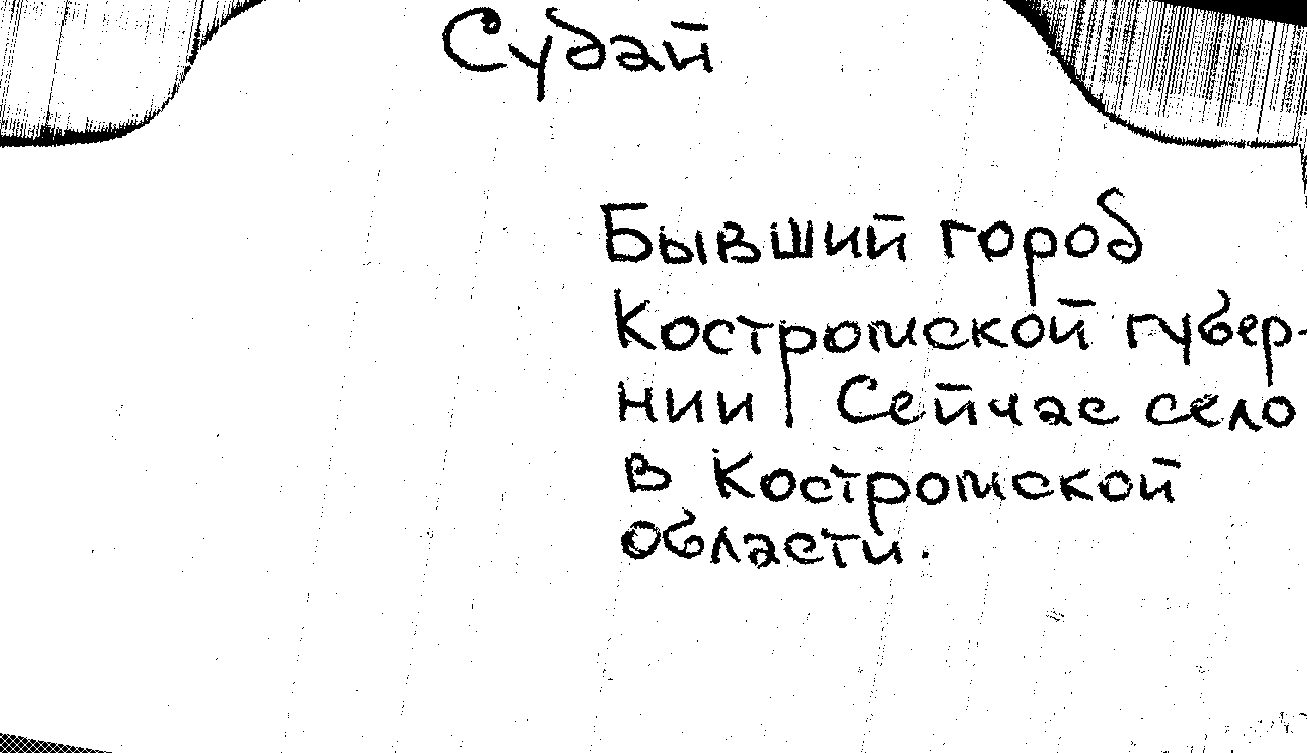 Судай
Бывший город
Костромской губер-
нии Сейчас село
в Костромской
области.